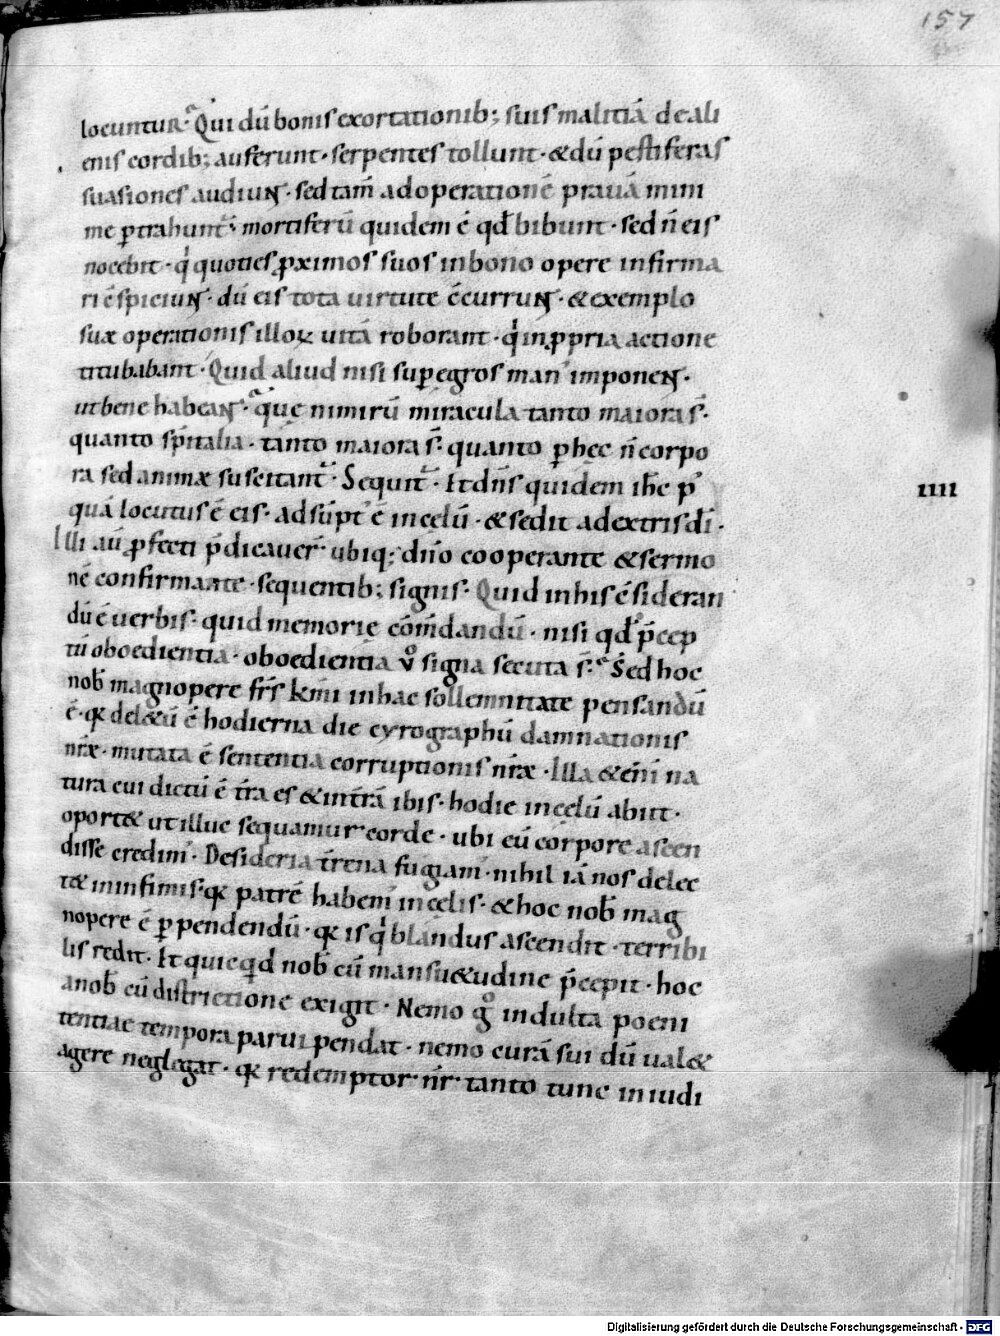 157
locuntur. Qui dū bonis exortationib; suis malitiā de ali
enis cordib; auferunt. serpentes tollunt. & dū pestiferas
suasiones audiunt. sed tam̄ ad operationē pravā mini
me ꝑtrahunt̄. mortiferū quidem ē qd̄ bibunt. sed n̄ eis
nocebit. qͥ quoties ꝓximos suos in bono opere infirma
ri c̄spiciunt. dū eis tota uirtute c̄currunt. & exemplo
suæ operationis illoꝝ uitā roborant. qͥ in ꝓpria actione
titubabant. Quid aliud nisi suꝑ egros man' imponent.
ut bene habeant. que nimirū miracula tanto maiora s̄.
quanto sp̄italia. tanto maiora s̄. quanto ꝑ hec n̄ corpo
ra sed animæ suscitant̄. Sequit̄. It dn̄s quidem ih̄c p'
quā locutus ē eis. adsūpt' ē in celū. & sedit ad extris dī.
IIII
Illi aū ꝓfecti p̄dicauer̄ ubiq; dn̄o cooperante & sermo
nē confirmante. sequentib; signis. Quid in his c̄sideran
dū ē uerbis. quid memorie cōm̄dandū. nisi qd̄ p̄cep
tū oboedientia. oboedientia v̊ signa secuta s̄. Sed hoc
nob̄ magnopere fr̄s km̄i in hac sollemnitate pensandū
ē. qꝫ del&ū ē hodierna die cyrographū damnationis
nr̄æ. mutata ē sententia corruptionis nr̄æ. Illa &eni̅ na
tura cui dictū ē tr̄a es & in tr̄ā ibis. hodie in celū abiit.
oport& ut illuc sequamur corde. ubi eū corpore ascen
disse credim'. Desideria tr̄rena fugiam'. nihil iā nos delec
t& in infimis. qꝫ patrē habem' in celis. & hoc nob̄ mag
nopere ē ꝑpendendū. qꝫ is qͥ blandus ascendit. terribi
lis redit. It quicqd nob̄ cū mansu&udine p̄cepit. hoc
a nob̄ cū districtione exigit. Nemo g̊ indulta poeni
tentiae tempora parui pendat. nemo curā sui dū ual&
agere neglegat. qꝫ redemptor nr̄ tanto tunc in iudi
Digitalisierung gefördert durch die Deutsche Forschungsgemeinschaft - DFG